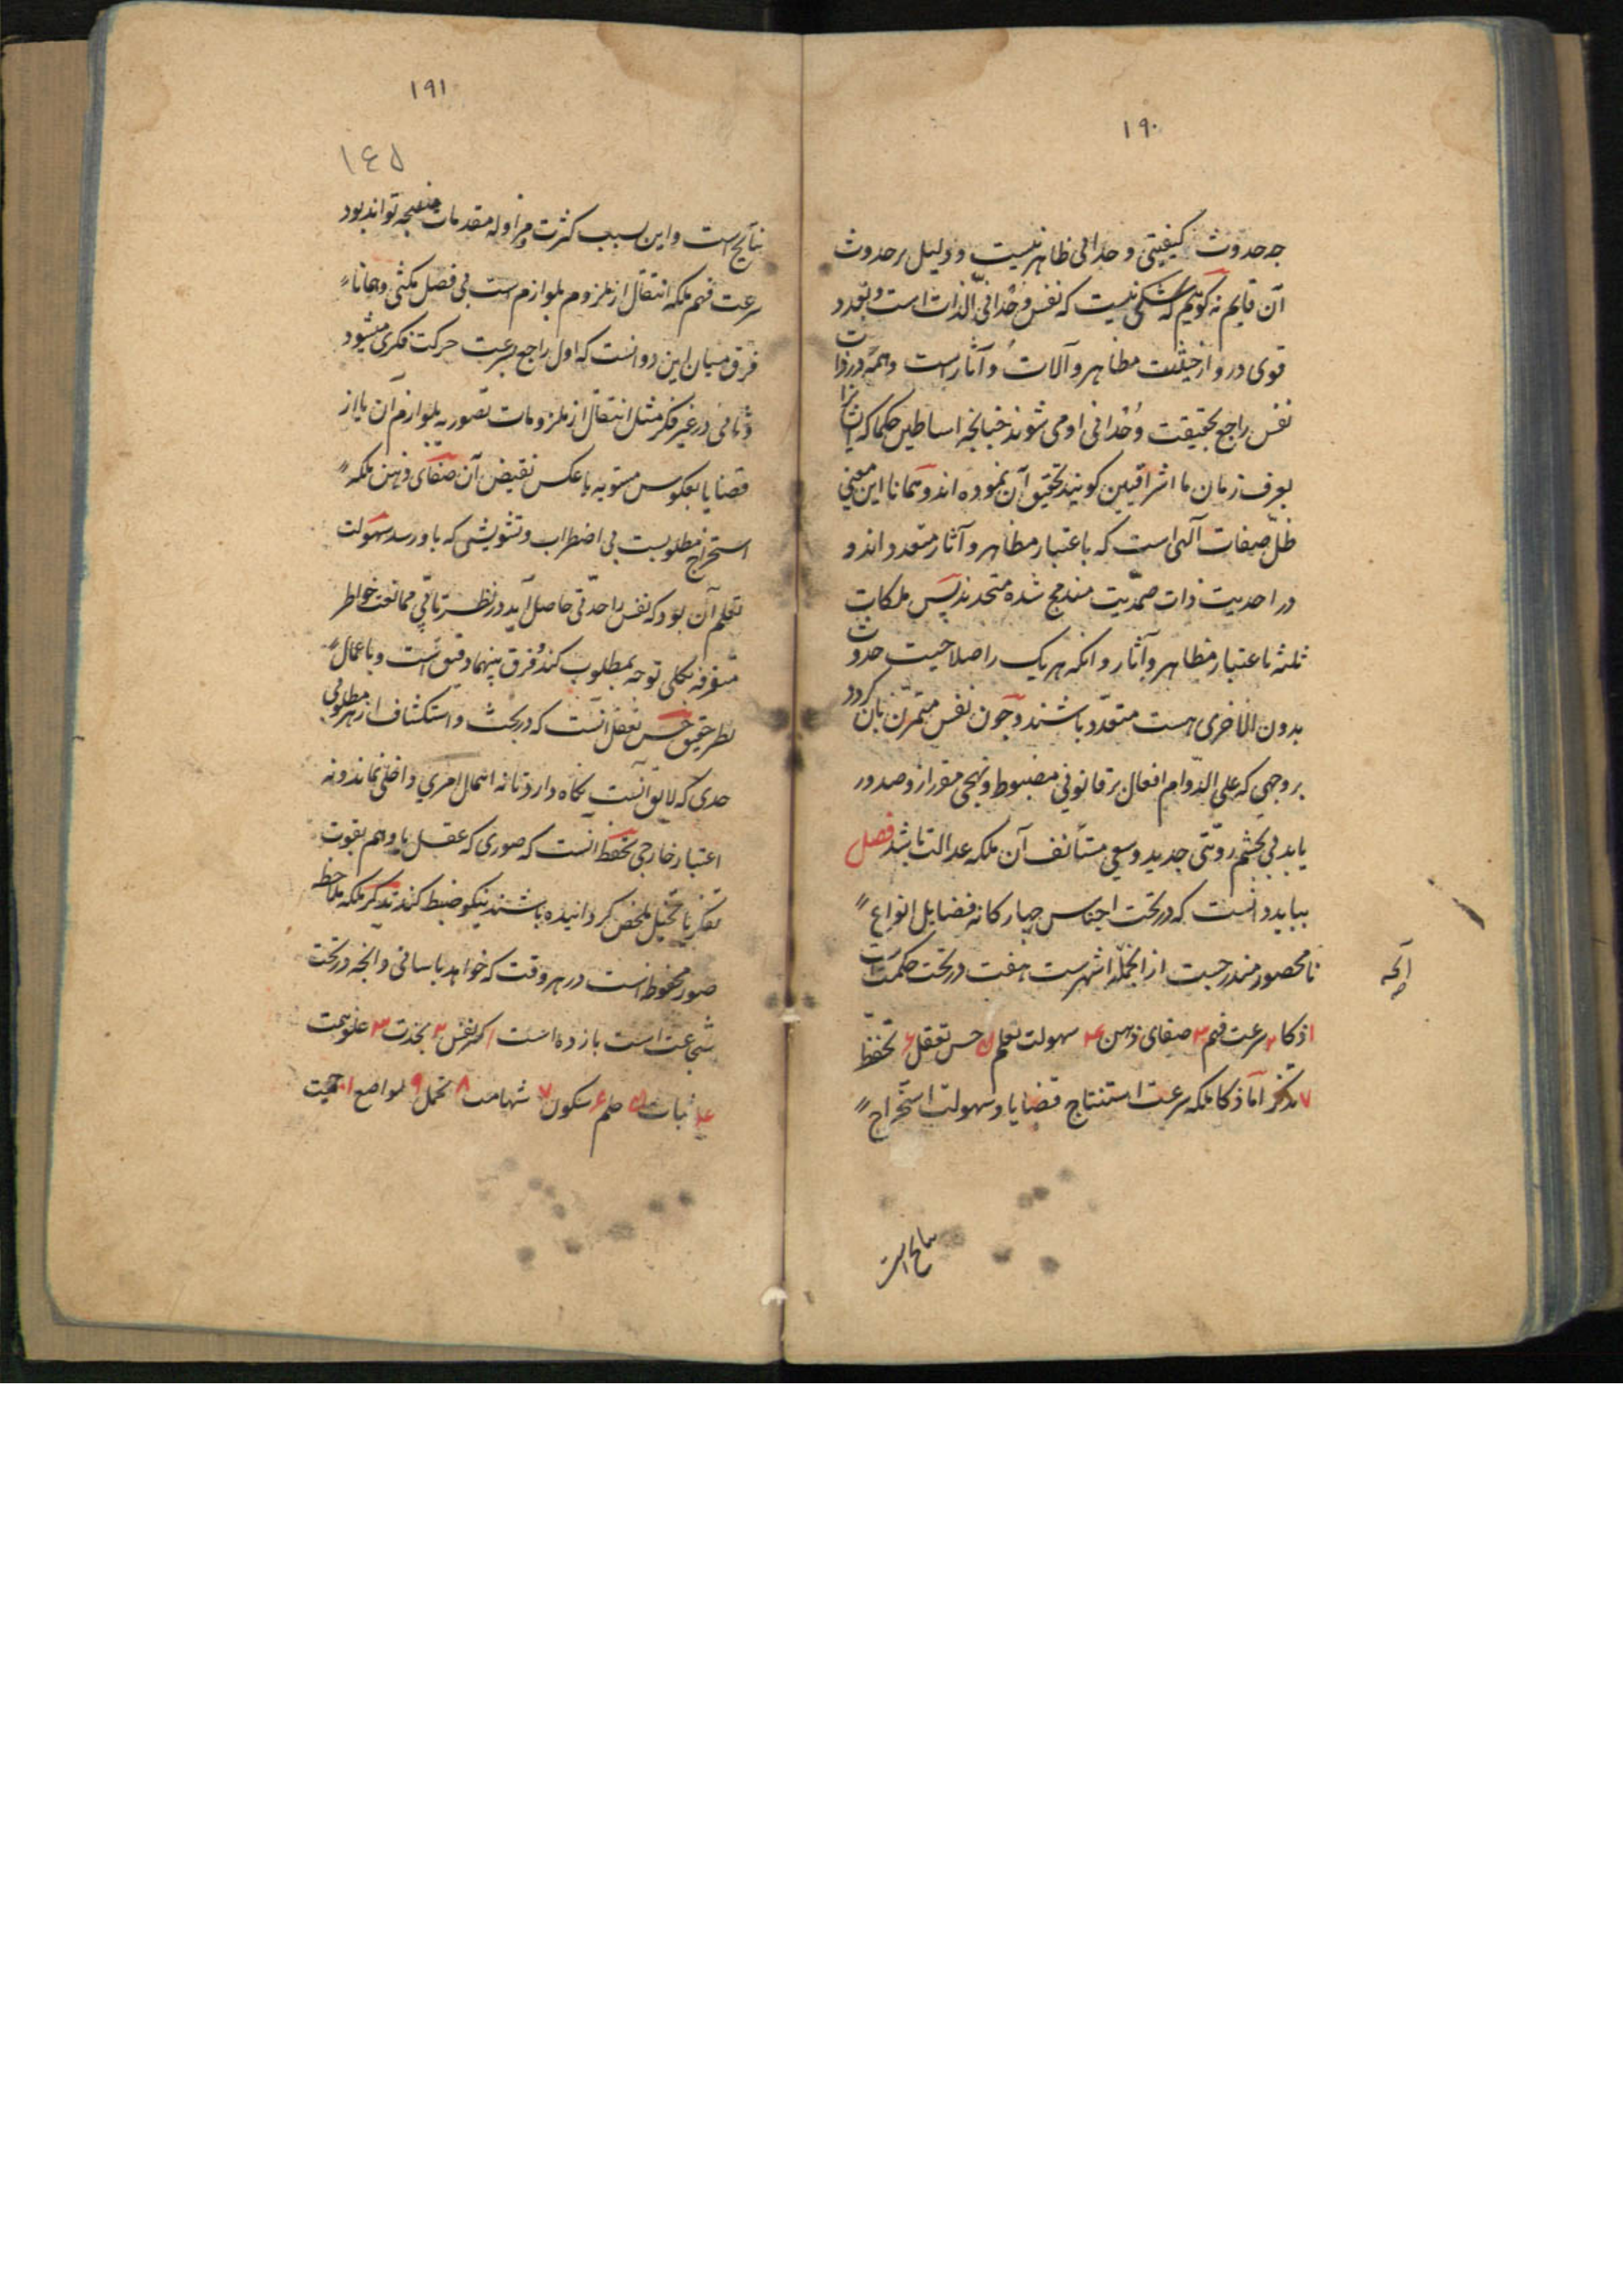 ١٩٠
جه حدوث کیفیتی وحدانی ظاهر نیست و دلیل بر حدوث
آن قایم نه گوییم که شکی نیست که نفس وحدانی الذات است و تعدد
قوی در و از حیثیت مظاهر و آلات و آثار است و همه در ذات
نفس راجع بحقیقت وحدانی او می شوند چنانچه اساطین حکما که ایشانرا
بعرف زمان ما اشراقیین گویند تحقیق آن نموده اند و همانا این معنی
ظل صفات آلهی است که باعتبار مظاهر و آثار متعدد اند و
در احدیت ذات صمدیت مندمج شده متحدند پس ملکات
ثلثه باعتبار مظاهر و آثار و انکه هر یک را صلاحیت حدوث
بدون الاخری هست متعدد باشند و چون نفس متمرن بآن گردد
بر وجهی که علی الدوام افعال بر قانونی مضبوط و نهجی مقرر ازو صدور
یابد بی تجشم رویتی جدید و سعی مستأنف آن ملکه عدالت باشد فصل
بباید دانست که در تحت اجناس چهارگانه فضایل انواع
نامحصور مندرجست از انجمله اشهرست هفت در تحت حکمت است
آنچه
١ ذکا ٢ سرعت فهم ٣ صفای ذهن ۴ سهولت تعلم ۵ حسن تعقل ۶ تحفظ
٧ تذکر اما ذکا ملکه سرعت استنتاج قضایا و سهولت استخراج
نتایج است
١٩١
١٤٥
نتایج است و این بسبب کثرت مزاوله مقدمات منتجه تواند بود
سرعت فهم ملکه انتقال از ملزوم بلوازم است بی فضل مکثی و همانا
فرق میان این دو انست که اول راجع بسرعت حرکت فکری میشود
و ثانی در غیر فکر مثل انتقال از ملزومات تصوریه بلوازم آن یا از
قضایا بعکوس مستویه یا عکس نقیض آن صفای ذهن ملکه
استخراج مطلوبست بی اضطراب و تشویشی که باو رسد سهولت
تعلم آن بود که نفس را حدتی حاصل آید در نظر تا بی ممانعت خواطر
متفرقه بکلی توجه بمطلوب کند و فرق بینهما دقیق است و باعمال
نظر حقیق حسن تعقل آنست که در بحث و استکشاف از هر مطلوبی
حدی که لایق آنست نگاه دارد تا نه اهمال امری داخلی نماید و نه
اعتبار خارجی تحفظ انست که صوری که عقل یا وهم بقوت
تفکر یا تخیل ملخص گردانیده باشند نیکو ضبط کند تذکر ملکه ملاحظه
صور محفوظه است در هر وقت که خواهد باسانی و انچه در تحت
شجاعت است یازده است ١ کبر نفس ٢ نجدت ٣ علو همت
۴ ثبات ۵ حلم ۶ سکون ٧ شهامت ٨ تحمل ٩ تواضع ١٠ حمیت